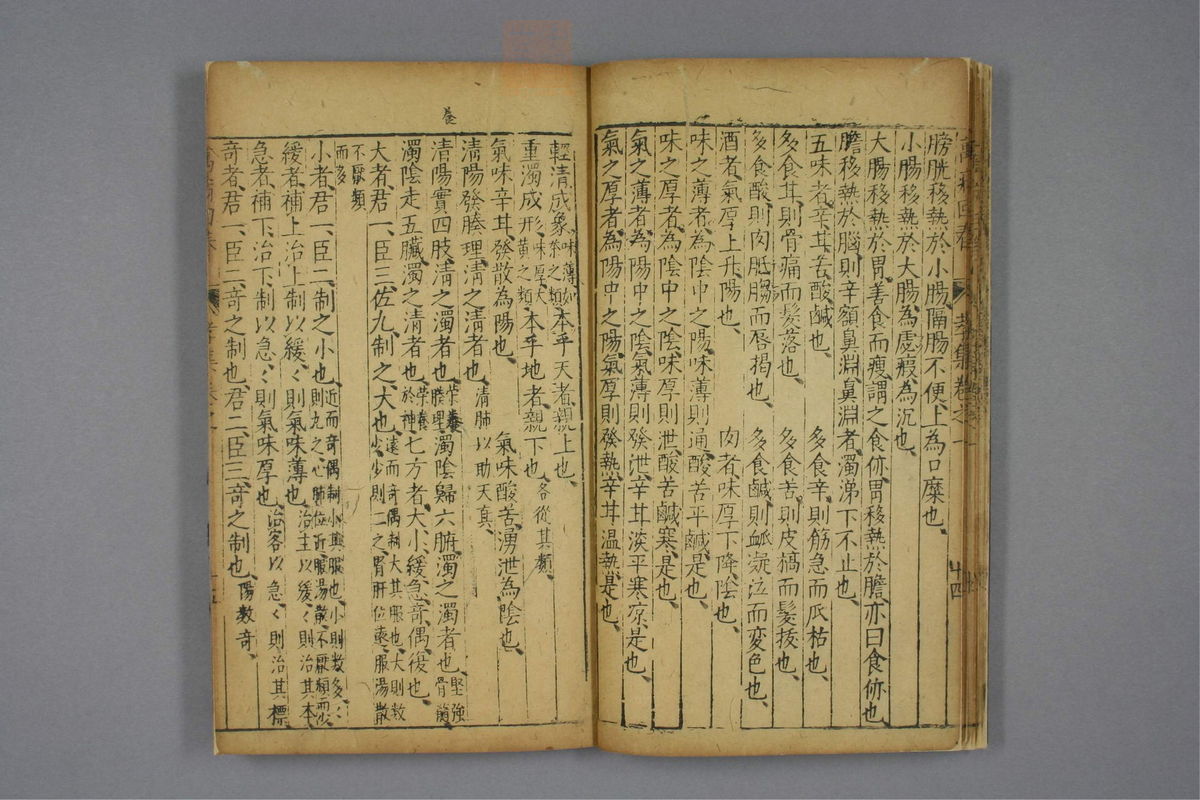 萬病回春 孝集卷之一 十四
膀胱移熱於小腸、隔腸不便、上爲口糜也、
小腸移熱於大腸、爲虙瘕、爲沉也、
大腸移熱於胃、善食而瘦、謂之食㑊、胃移熱於膽、亦曰食㑊也、
膽移熱於腦、則辛額鼻淵、鼻淵者、濁涕下不止也、
五味者、辛、甘、苦、酸、鹹也、 多食辛、則筋急而爪枯也、
多食甘、則骨痛而髮落也、 多食苦、則皮槁而髮拔也、
多食酸、則肉胝䐢而唇揭也、 多食鹹、則衇凝泣而変色也、
酒者、氣厚上升、陽也、 肉者、味厚下降、陰也、
味之薄者、為陰中之陽、味薄則通、酸苦平鹹是也、
味之厚者、為陰中之陰、味厚則泄、酸苦鹹寒是也、
氣之薄者、為陽中之陰、氣薄則發泄、辛甘淡平寒凉是也、
氣之厚者、為陽中之陽、氣厚則發熱、辛甘温熱是也、
輕清成象、味薄如茶之類、本乎天者親上也、
重濁成形、味厚大黄之類、本乎地者親下也、各從其類、
氣味辛甘、發散為陽也、 氣味酸苦、湧泄為陰也、
清陽發腠理、清之清者也、清肺以助天真、
清陽實四肢、清之濁者也、榮養腠理、濁陰歸六腑、濁之濁者也、堅強骨髓
濁陰走五臟、濁之清者也、榮養於神、七方者、大、小、緩、急、奇、偶、復也、
大者、君一、臣三、佐九、制之大也、遠而奇偶、制大其服也、大則数少、少則二之、腎肝位遠、服湯散
不厭頻而多
小者、君一、臣二、制之小也、近而奇偶、制小其服也、小則数多、多則九之、心肺位近、服湯散、不厭頻而少
緩者、補上治上、制以緩、〻則氣味薄也、治主以緩、〻則治其本
急者、補下治下、制以急、〻則氣味厚也、治客以急、〻則治其標
奇者、君一、臣二、奇之制也、君二、臣三、奇之制也、陽数奇、